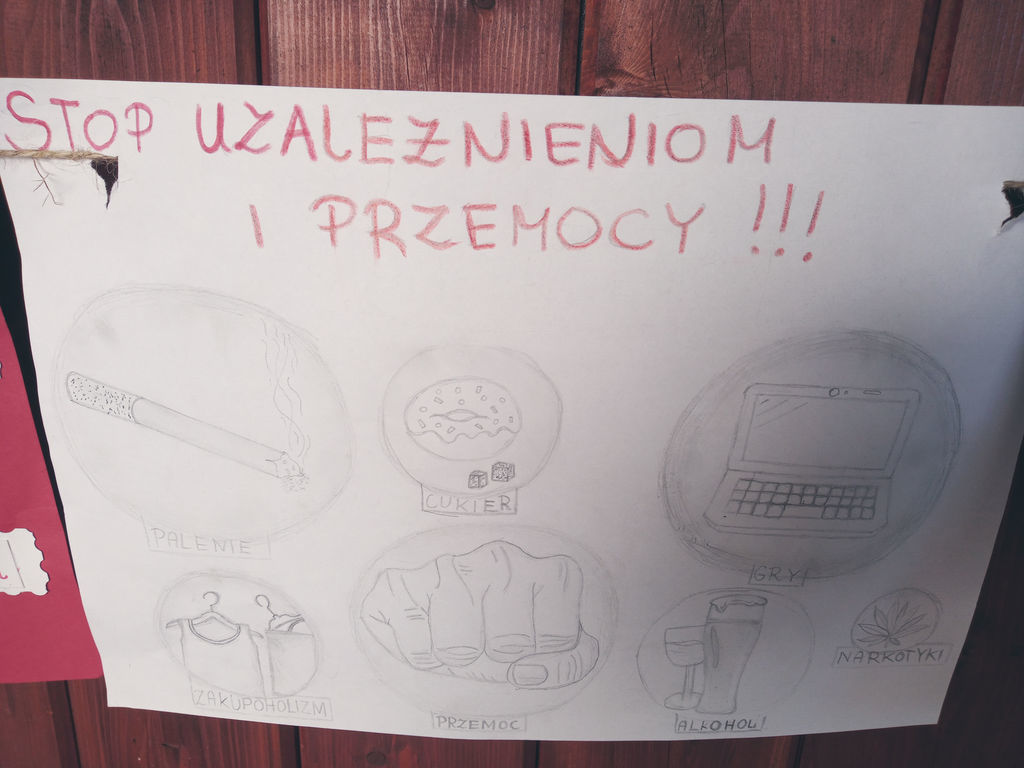 STOP UZALEŻNIENIOM
I PRZEMOCY !!!
CUKIER
PALENIE
GRY
NARKOTYKI
ZAKUPOHOLIZM
PRZEMOC
ALKOHOL